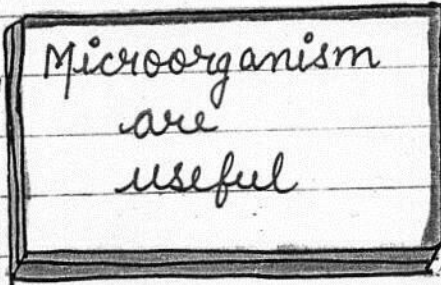 Microorganism
are
useful